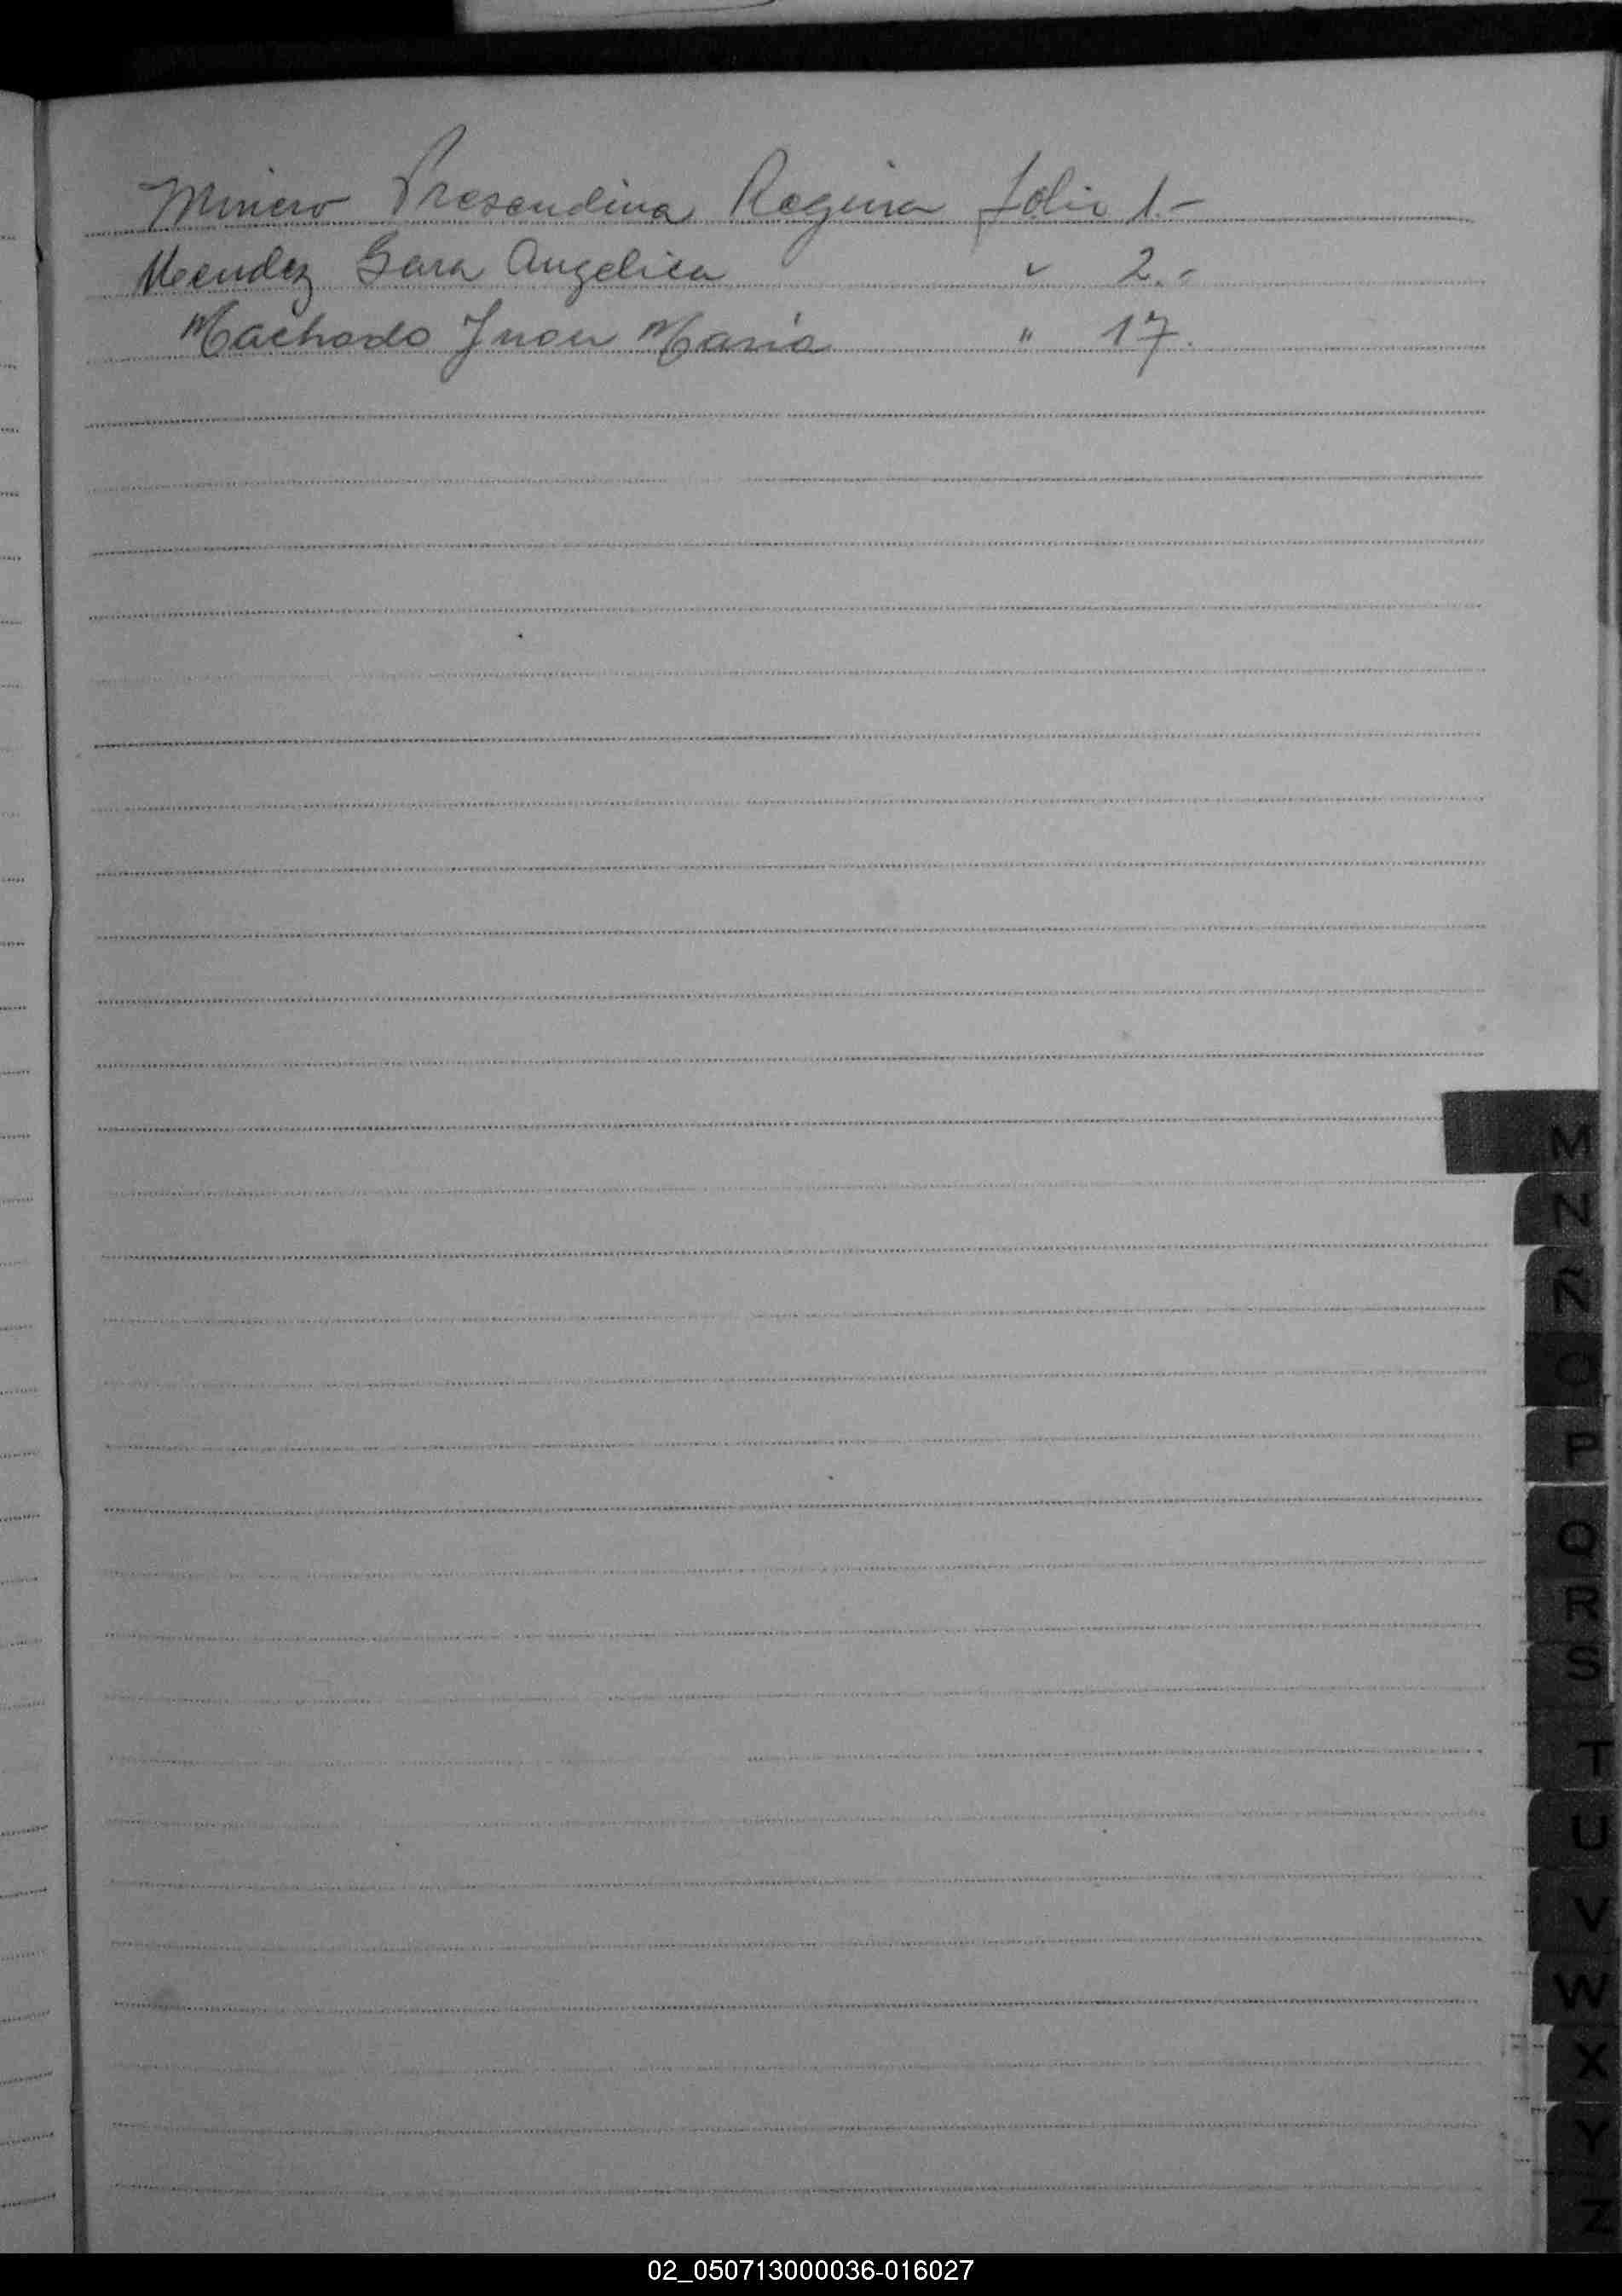 Minero Presendina Regina folio 1.-
Mendez Sara Angelica " 2.-
Machado Juan María " 17.
M
N
Ñ
O
P
Q
R
S
T
U
V
W
X
Y
Z
02_050713000036-016027